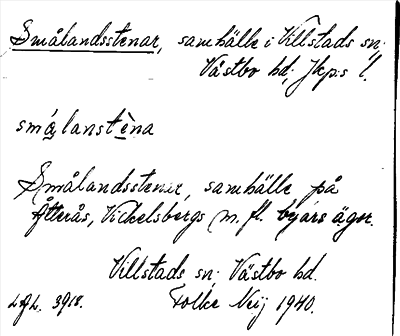 Smålandsstenar, samhälle i Villstads sn;
Västbo hd; Jkp:s l.
smálanstèna
Smålandsstenar, samhälle på
Åtterås, Vickelsbergs m. fl. byars ägor.
Villstads sn; Västbo hd.
Lgh. 3918. Folke Neij 1940.